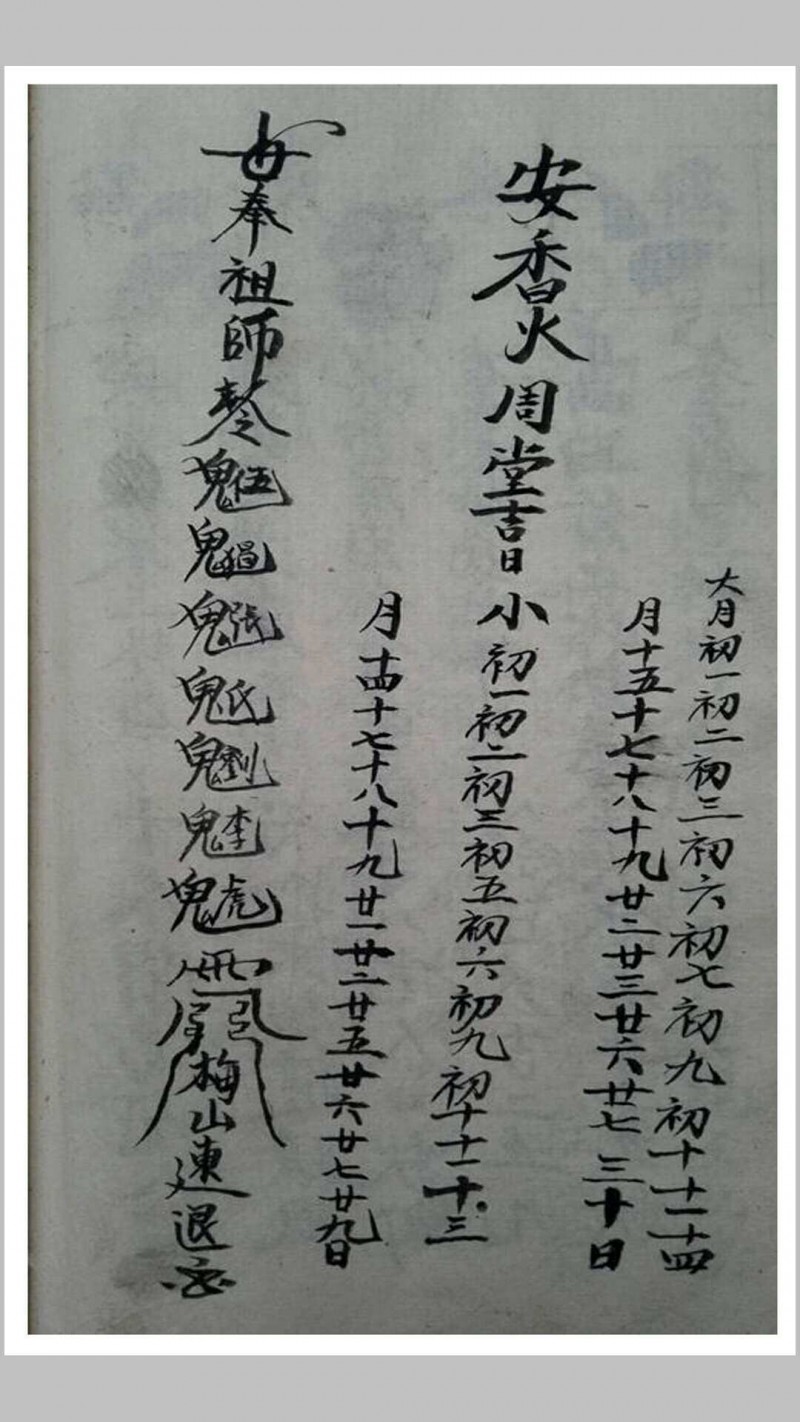 安香火周堂吉日
大月初一初二初三初六初七初九初十十一十四
月十五十七十八十九廿二廿三廿六廿七三十日
小初一初二初三初五初六初九初十十一十三
月十四十七十八十九廿一廿二廿五廿六廿七廿九日
奉祖師
梅山速退